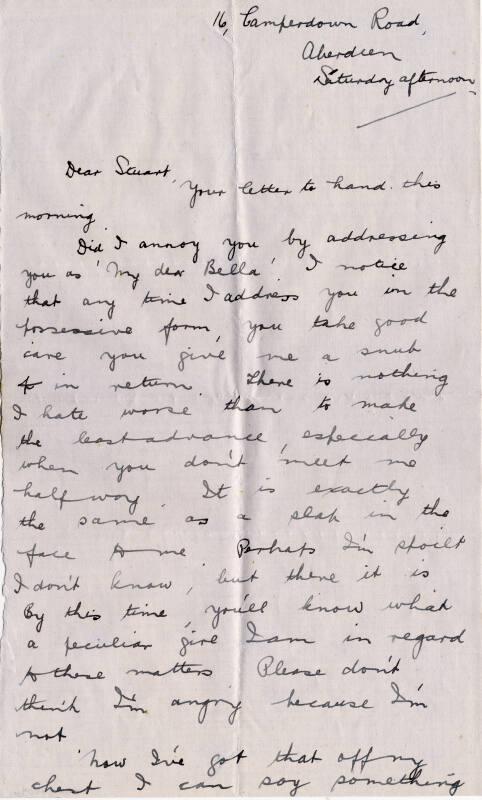 16, Camperdown Road,
Aberdeen
Saturday afternoon
Dear Stuart,
Your letter to hand this
morning
Did I annoy you by addressing
you as 'My dear Bella'. I notice
that any time I address you in the
possessive form, you take good
care you give me a snub
in return. There is nothing
I hate worse than to make
the least advance, especially
when you don't meet me
halfway. It is exactly
the same as a slap in the
face to me. Perhaps I'm spoilt
I don't know, but there it is
By this time, you'll know what
a peculiar girl I am in regard
to these matters Please don't
think I'm angry because I'm
not
Now I've got that off my
chest I can say something